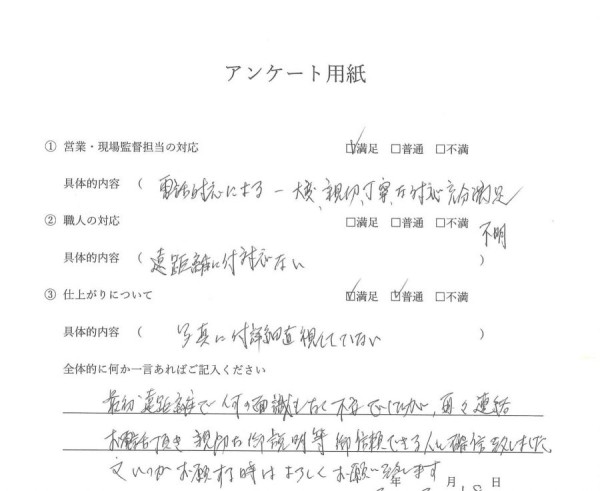 アンケート用紙
① 営業・現場監督担当の対応 ☑満足 □普通 □不満
具体的内容 ( 電話対応による 一 大変、親切、丁寧な対応充分満足
② 職人の対応 □満足 □普通 □不満 不明
具体的内容 ( 遠距離に付対応ない )
③ 仕上がりについて ☑満足 ☑普通 □不満
具体的内容 ( 写真に付詳細直視していない )
全体的に何か一言あればご記入ください
最初遠距離で何の面識もなく不安でしたが、再々連絡
お電話頂き親切な御説明等御信頼できる人と確信致しました
又いつかお願する時はよろしくお願い致します
年 月 日